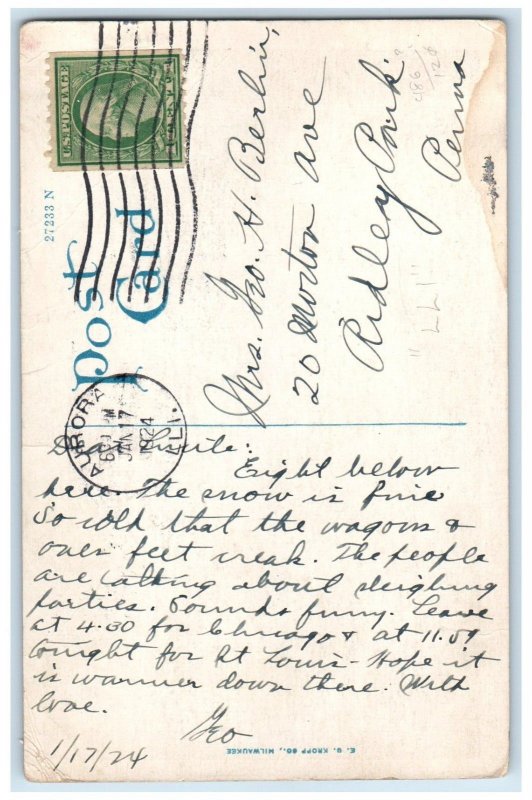 U.S. POSTAGE
27233 N
Post
Card
AURORA
JAN 17
1924
ILL.
Mrs. Geo. H. Berlin,
20 Morton ave
Ridley Park
Penna
Eight below
here. The snow is fine
So cold that the wagons &
ones feet creak. The people
are talking about sleighing
parties. Sounds funny. Leave
at 4.30 for Chicago & at 11.59
tonight for St Louis - Hope it
is warmer down there. With
love.
Geo
1/17/24
E. C. KROPP CO., MILWAUKEE